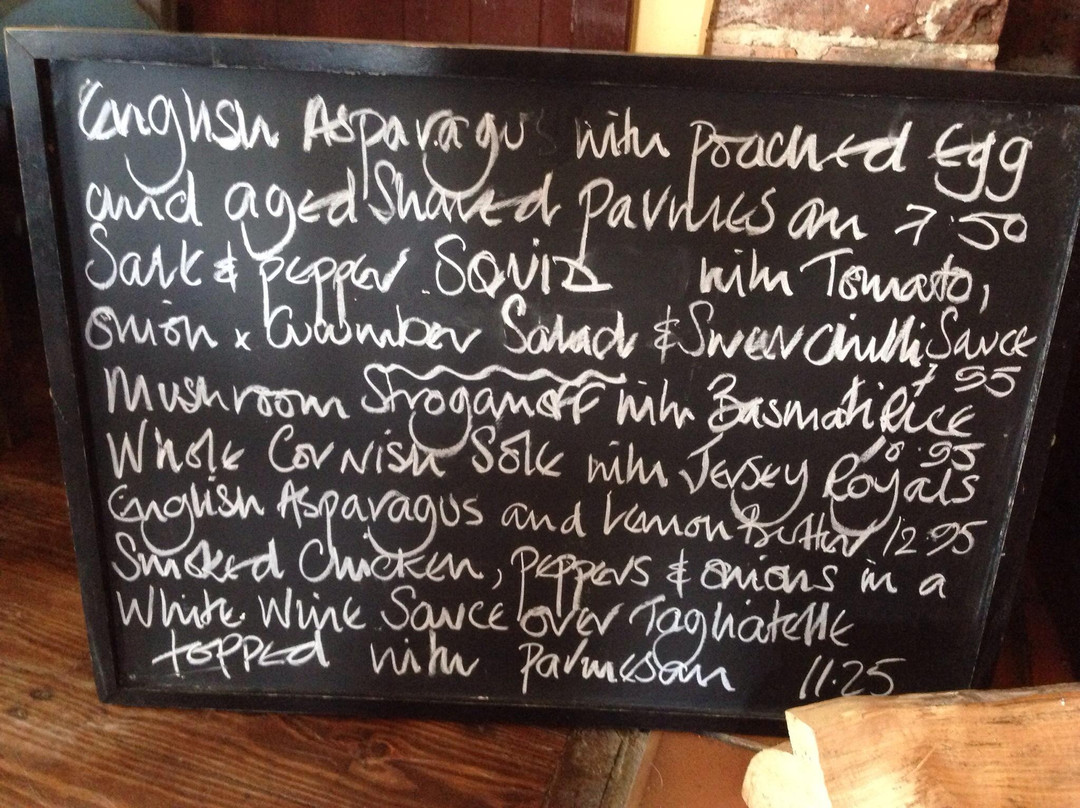 English Asparagus with poached Egg
and aged Shaved parmesan 7.50
Salt & pepper Squid with Tomato,
onion x Cucumber Salad & Sweet chilli Sauce
7.95
Mushroom Stroganoff with Basmati Rice
10.95
Whole Cornish Sole with Jersey Royals
English Asparagus and Lemon Butter 12.95
Smoked Chicken, peppers & onions in a
White Wine Sauce over Tagliatelle
topped with parmesan 11.25